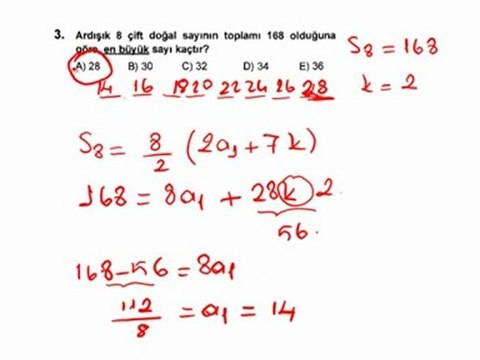 3. Ardışık 8 çift doğal sayının toplamı 168 olduğuna
göre, en büyük sayı kaçtır?
A) 28 B) 30 C) 32 D) 34 E) 36
14 16 18 20 22 24 26 28
S8 = 168
k = 2
S8 = 8/2 (2a1 + 7k)
168 = 8a1 + 28k 2
56.
168 - 56 = 8a1
112/8 = a1 = 14